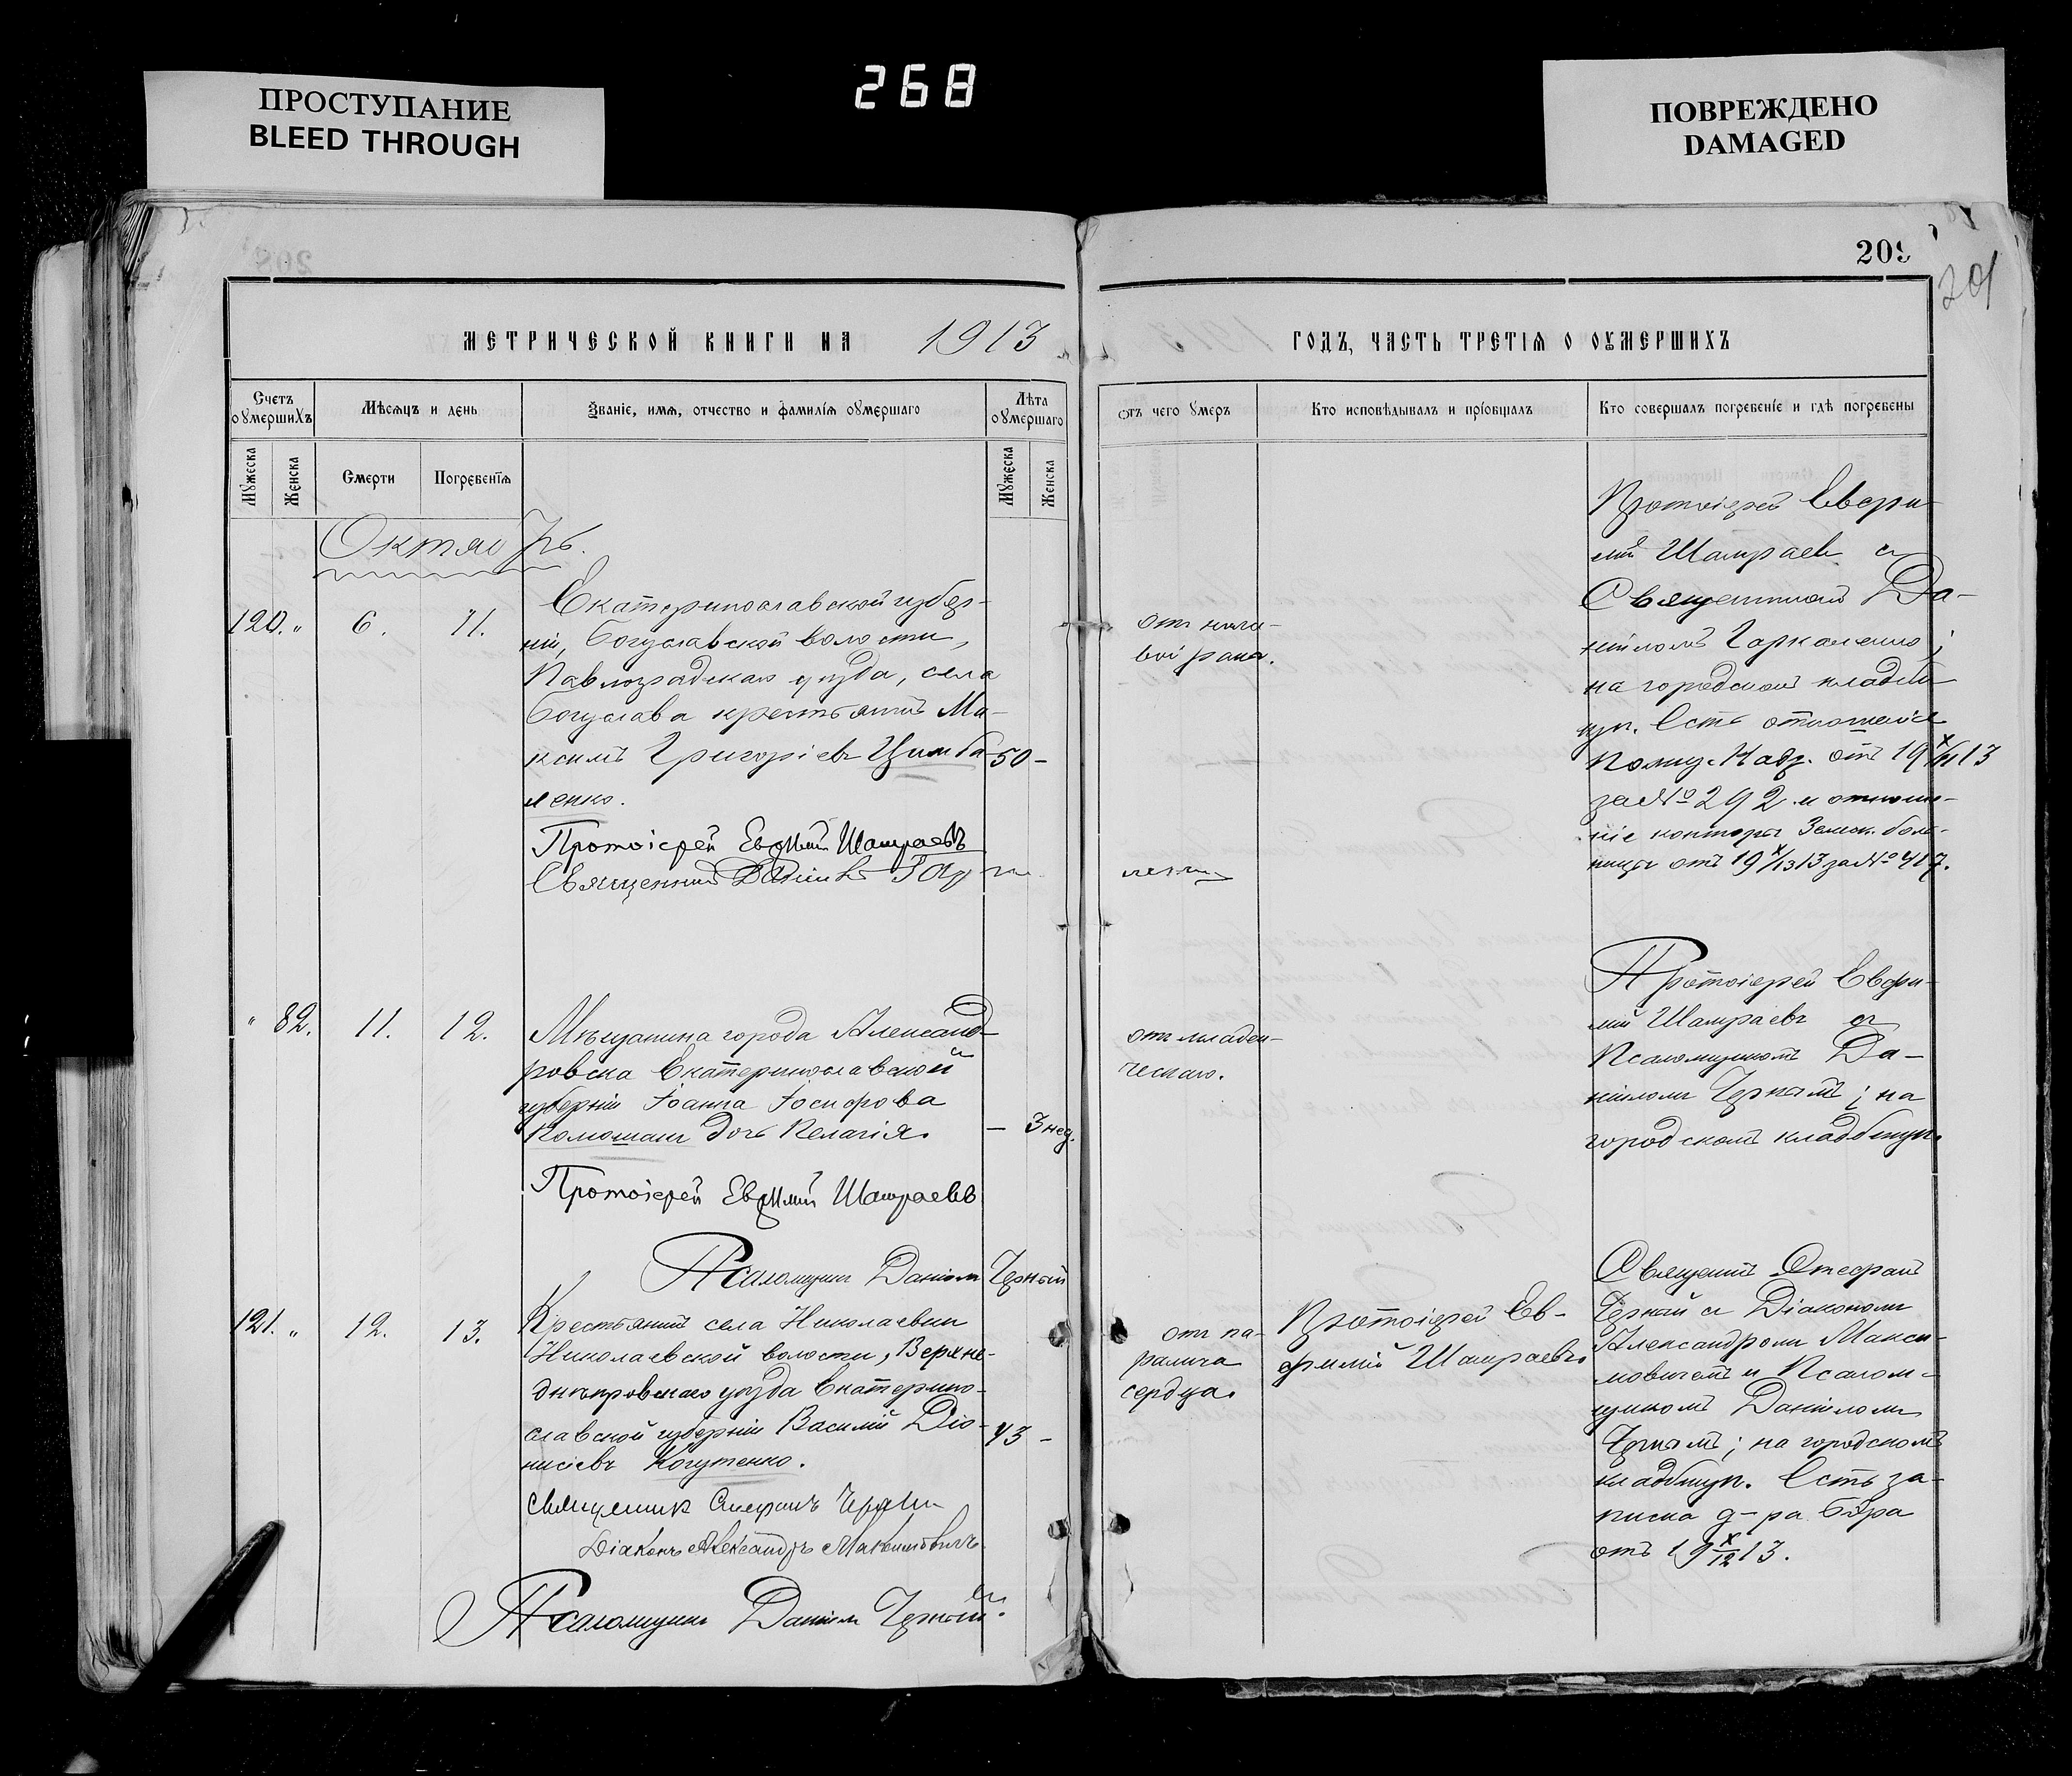 ПРОСТУПАНИЕ
BLEED THROUGH
268
ПОВРЕЖДЕНО
DAMAGED
209
201
МЕТРИЧЕСКОЙ КНИГИ НА 1913 ГОДЪ, ЧАСТЬ ТРЕТІЯ О ОУМЕРШИХЪ
Счетъ оумершихъ
Мѣсяцъ и день
Званіе, имя, отчество и фамилія оумершаго
Лѣта оумершаго
отъ чего умеръ
Кто исповѣдывалъ и пріобщалъ
Кто совершалъ погребеніе и гдѣ погребены
Мужеска
Женска
Смерти
Погребенія
Мужеска
Женска
Октябрь.
120. „ 6. 11.
Екатеринославской губер-
ніи, Богуславской волости,
Павлоградскаго уѣзда, села
Богуслава крестьянинъ Ма-
ксимъ Григоріевъ Цимба-
ленко.
50 -
Протоіерей Евфимій Шамраевъ
Священникъ Даніилъ Гар
ленко
Протоіерей Евфи-
мій Шамраевъ съ
Священникомъ Да-
ніиломъ Гаркаленко;
на городскомъ кладби-
щѣ. Есть отношеніе
Полиц. Надз. отъ 19 X/11 13
за № 292 и отноше-
ніе конторы Земск. боль-
ницы отъ 19 X/13 13 за № 417.
„ 82. 11. 12.
Мѣщанина города Александ-
ровска Екатеринославской
губерніи Іоанна Іосифова
дочь Пелагія.
— 3 нед.
Протоіерей Евфимій Шамраевъ
Псаломщикъ Даніилъ Черный
отъ младен-
ческаго.
Протоіерей Евфи-
мій Шамраевъ съ
Псаломщикомъ Да-
ніиломъ Чернымъ; на
городскомъ кладбищѣ.
121. „ 12. 13.
Крестьянинъ села Николаевки
Николаевской волости, Верхне-
днѣпровскаго уѣзда Екатерино-
славской губерніи Василій Діо-
нисіевъ Когутенко.
43 -
Священник Стефанъ Черный
Діаконъ Александръ Максимовичъ
Псаломщикъ Даніилъ Черный.
отъ па-
ралича
сердца.
Протоіерей Ев-
фимій Шамраевъ
Священникъ Стефанъ
Черный съ Діакономъ
Александромъ Макси-
мовичемъ и Псалом-
щикомъ Даніиломъ
Чернымъ; на городскомъ
кладбищѣ. Есть за-
писка д-ра Бера
отъ 19 X/12 13.